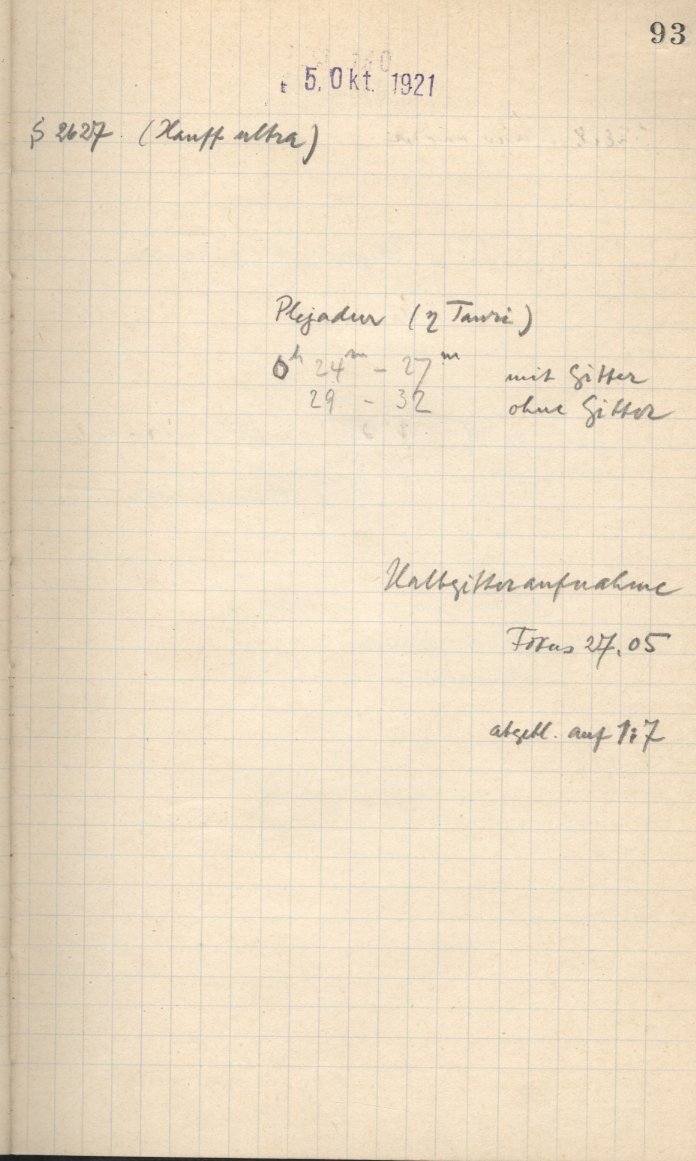 93
5. Okt. 1921
S 2627. (Hauff ultra)
Plejaden (η Tauri)
0h 24m - 27m mit Gitter
29 - 32 ohne Gitter
Halbgitteraufnahme
Fokus 27.05
abgebl. auf 1:7